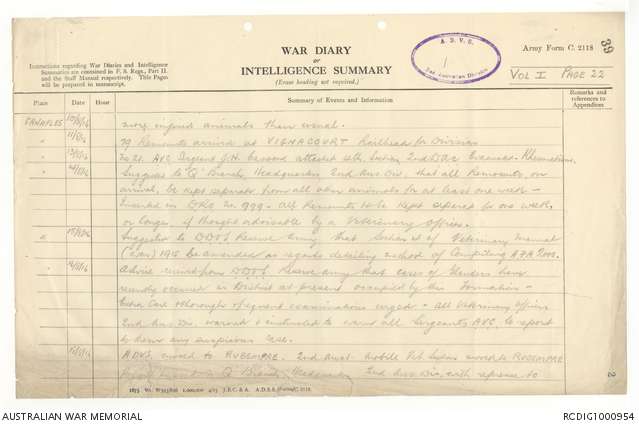 Instructions regarding War Diaries and Intelligence
Summaries are contained in F. S. Regs., Part II.
and the Staff Manual respectively. Title Pages
will be prepared in manuscript.
WAR DIARY
or
INTELLIGENCE SUMMARY
(Erase heading not required.)
A.D.V.S.
2nd Australian Division
Army Form C. 2118
39
VOL I PAGE 22
Place
Date
Hour
Summary of Events and Information
Remarks and
references to
Appendices
CANAPLES
more injured animals than usual.
79 Remounts arrived at VIGNACOURT Railhead for Division
AVC Sergeant J.H. attached 4th Section 2nd DAC Evacuated - Rheumatism.
Suggest to "Q" Branch, Headquarters 2nd Aus Div. that all Remounts, on
arrival, be kept separate from all other animals for at least one week -
Inserted in DRO No. 999 - All Remounts to be kept separate for one week,
or longer if thought advisable by a Veterinary Officer.
Suggested to DDVS Reserve Army that Section of Veterinary Manual
(War) 1915 be amended as regards detailing method of Computing A.F.A 2000.
Advice received from DDVS Reserve Army that cases of Glanders have
recently occurred in District at present occupied by this Formation -
Extra Care & thorough & frequent examinations urged - All Veterinary Officers
2nd Aus Div. warned & instructed to warn all Sergeants AVC to report
to them any suspicious case.
ADVS moved to RUBEMPRE. 2nd Aust. Mobile Vet Section moved to RUBEMPRE
"Q" Branch, Headquarters 2nd Aus Div, with reference to
2
1875 Wt. W593/826 1,000,000 4/15 J.B.C. & A. A.D.S.S./Forms/C. 2118.
AUSTRALIAN WAR MEMORIAL
RCDIG1000954